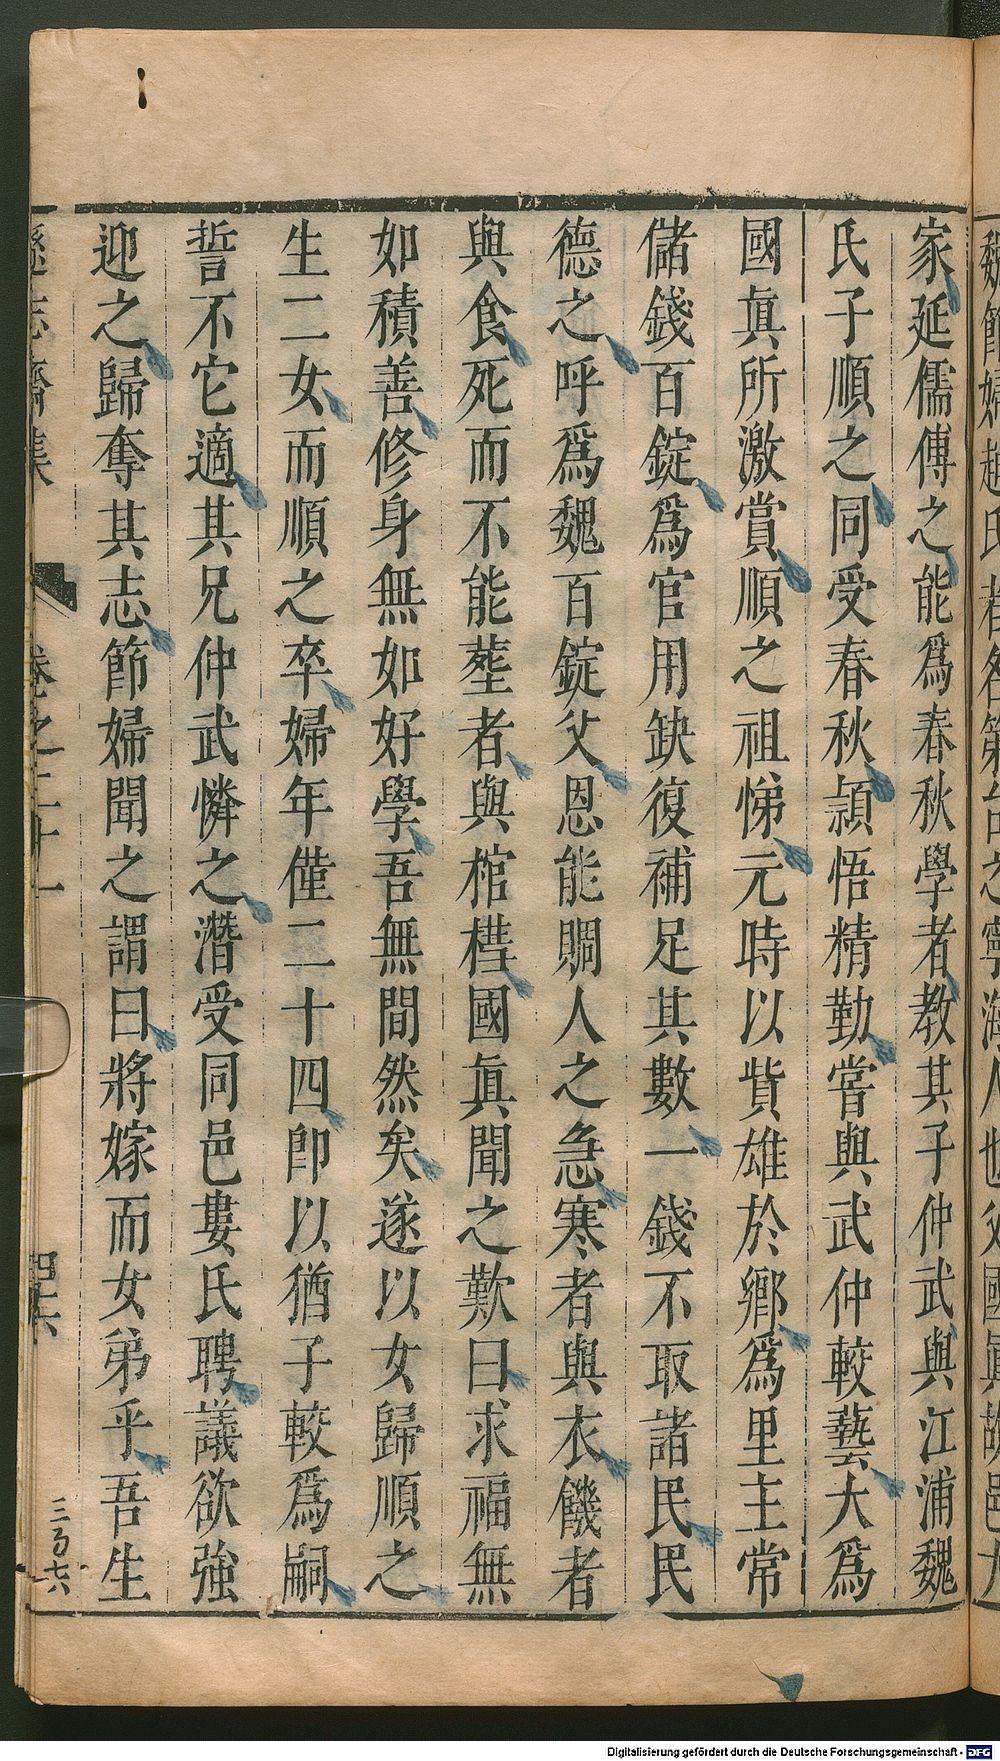 家延儒傅之能爲春秋學者教其子仲武與江浦魏
氏子順之同受春秋頴悟精勤嘗與武仲較藝大爲
國眞所激賞順之祖悌元時以貲雄於鄉爲里主常
儲錢百錠爲官用缺復補足其數一錢不取諸民民
德之呼爲魏百錠父恩能賙人之急寒者與衣饑者
與食死而不能塟者與棺槥國眞聞之歎曰求福無
如積善修身無如好學吾無間然矣遂以女歸順之
生二女而順之卒婦年僅二十四卽以猶子較爲嗣
誓不它適其兄仲武憐之潛受同邑婁氏聘議欲強
迎之歸奪其志節婦聞之謂曰將嫁而女弟乎吾生
遜志齋集
卷之二十一
四六
Digitalisierung gefördert durch die Deutsche Forschungsgemeinschaft - DFG